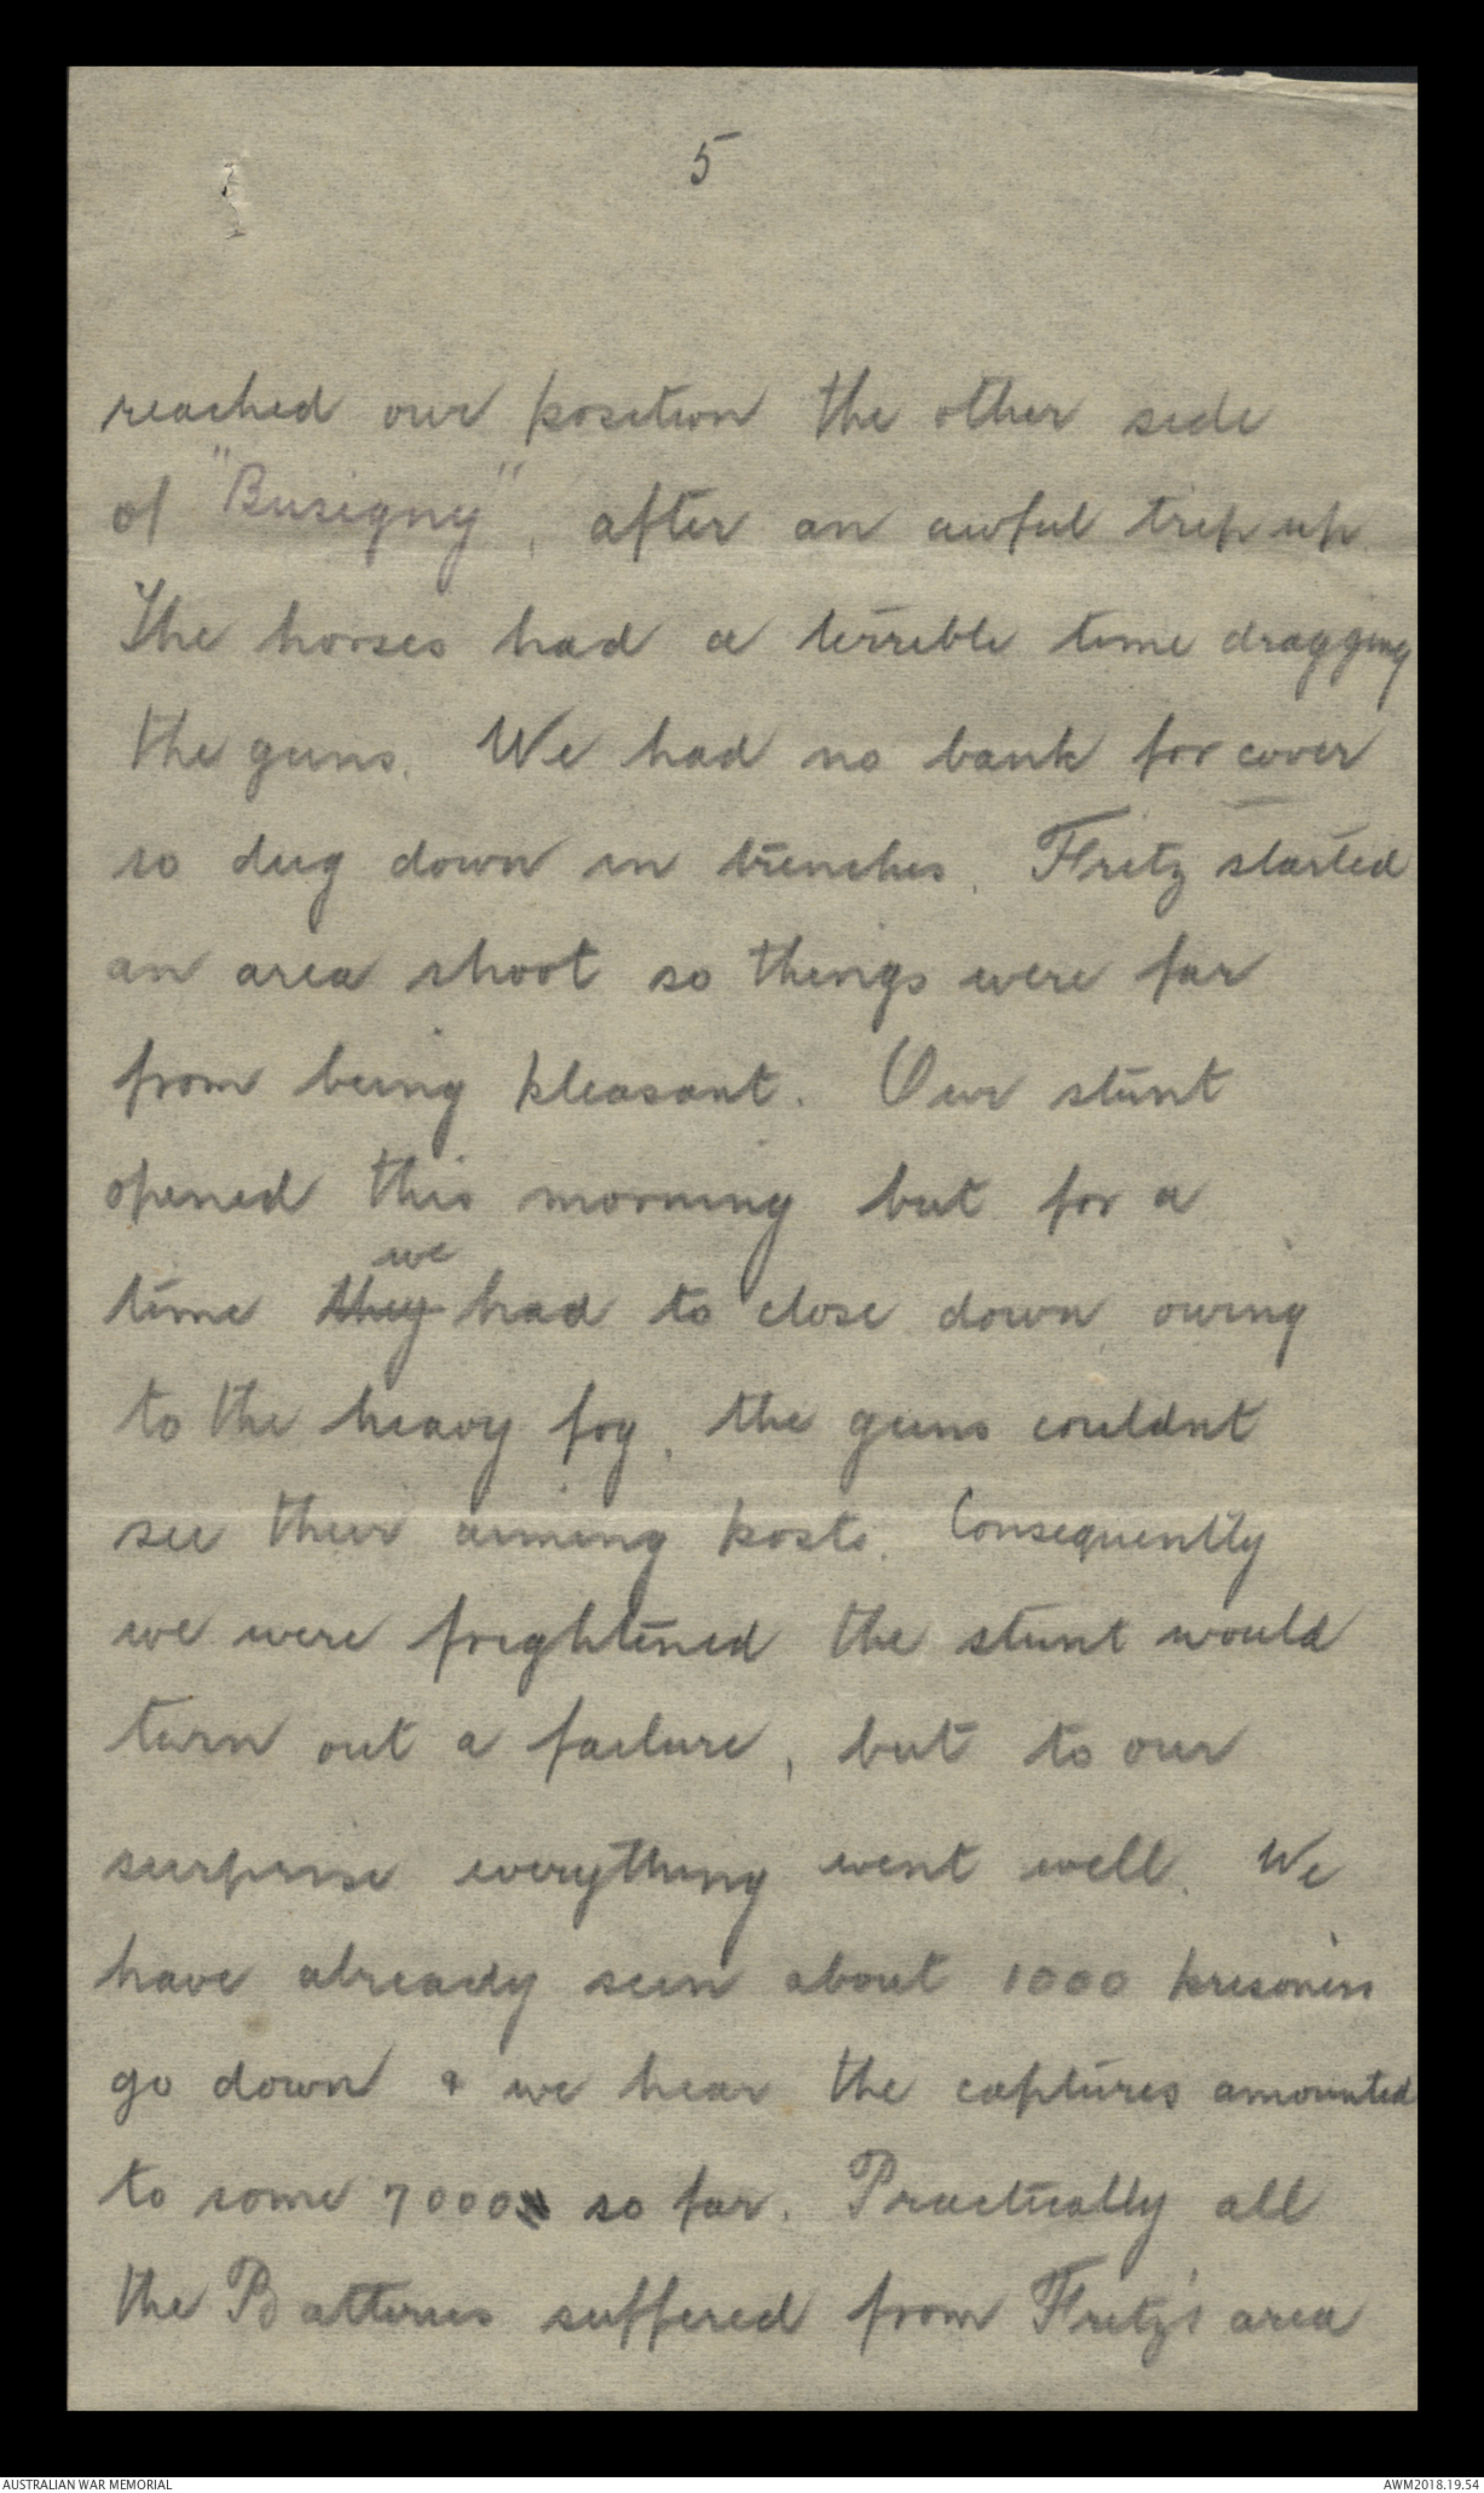 5
reached our position the other side
of "Busigny", after an awful trip up.
The horses had a terrible time dragging
the guns. We had no bank for cover
so dug down in trenches. Fritz started
an area shoot so things were far
from being pleasant. Our stunt
opened this morning but for a
we
time they had to close down owing
to the heavy fog, the guns couldnt
see their aiming posts. Consequently
we were frightened the stunt would
turn out a failure, but to our
surprise everything went well. We
have already seen about 1000 prisoners
go down & we hear the captures amounted
to some 7000 so far. Practically all
the Batteries suffered from Fritz's area
AUSTRALIAN WAR MEMORIAL
AWM2018.19.54